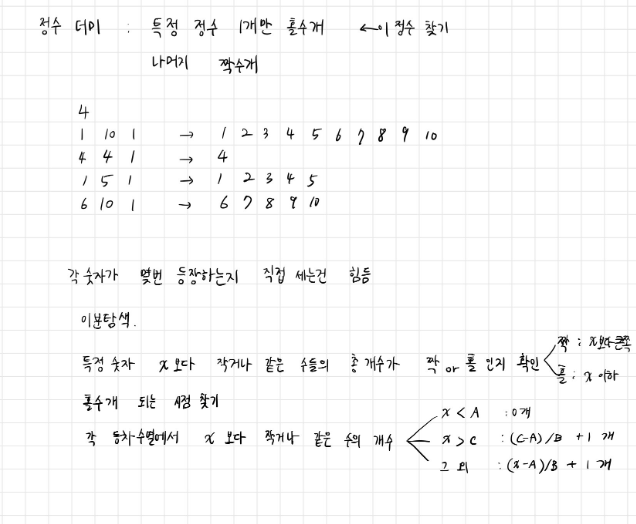 정수 더미 : 특정 정수 1개만 홀수개 ← 이 정수 찾기
나머지 짝수개
4
1 10 1 → 1 2 3 4 5 6 7 8 9 10
4 4 1 → 4
1 5 1 → 1 2 3 4 5
6 10 1 → 6 7 8 9 10
각 숫자가 몇번 등장하는지 직접 세는건 힘듦
이분탐색.
특정 숫자 x 보다 작거나 같은 수들의 총 개수가 짝 or 홀 인지 확인
짝 : x보다 큰쪽
홀 : x 이하
홀수개 되는 시점 찾기
각 등차수열에서 x 보다 작거나 같은 수의 개수
x < A : 0개
x > C : (C-A)/B + 1 개
그 외 : (x-A)/B + 1 개